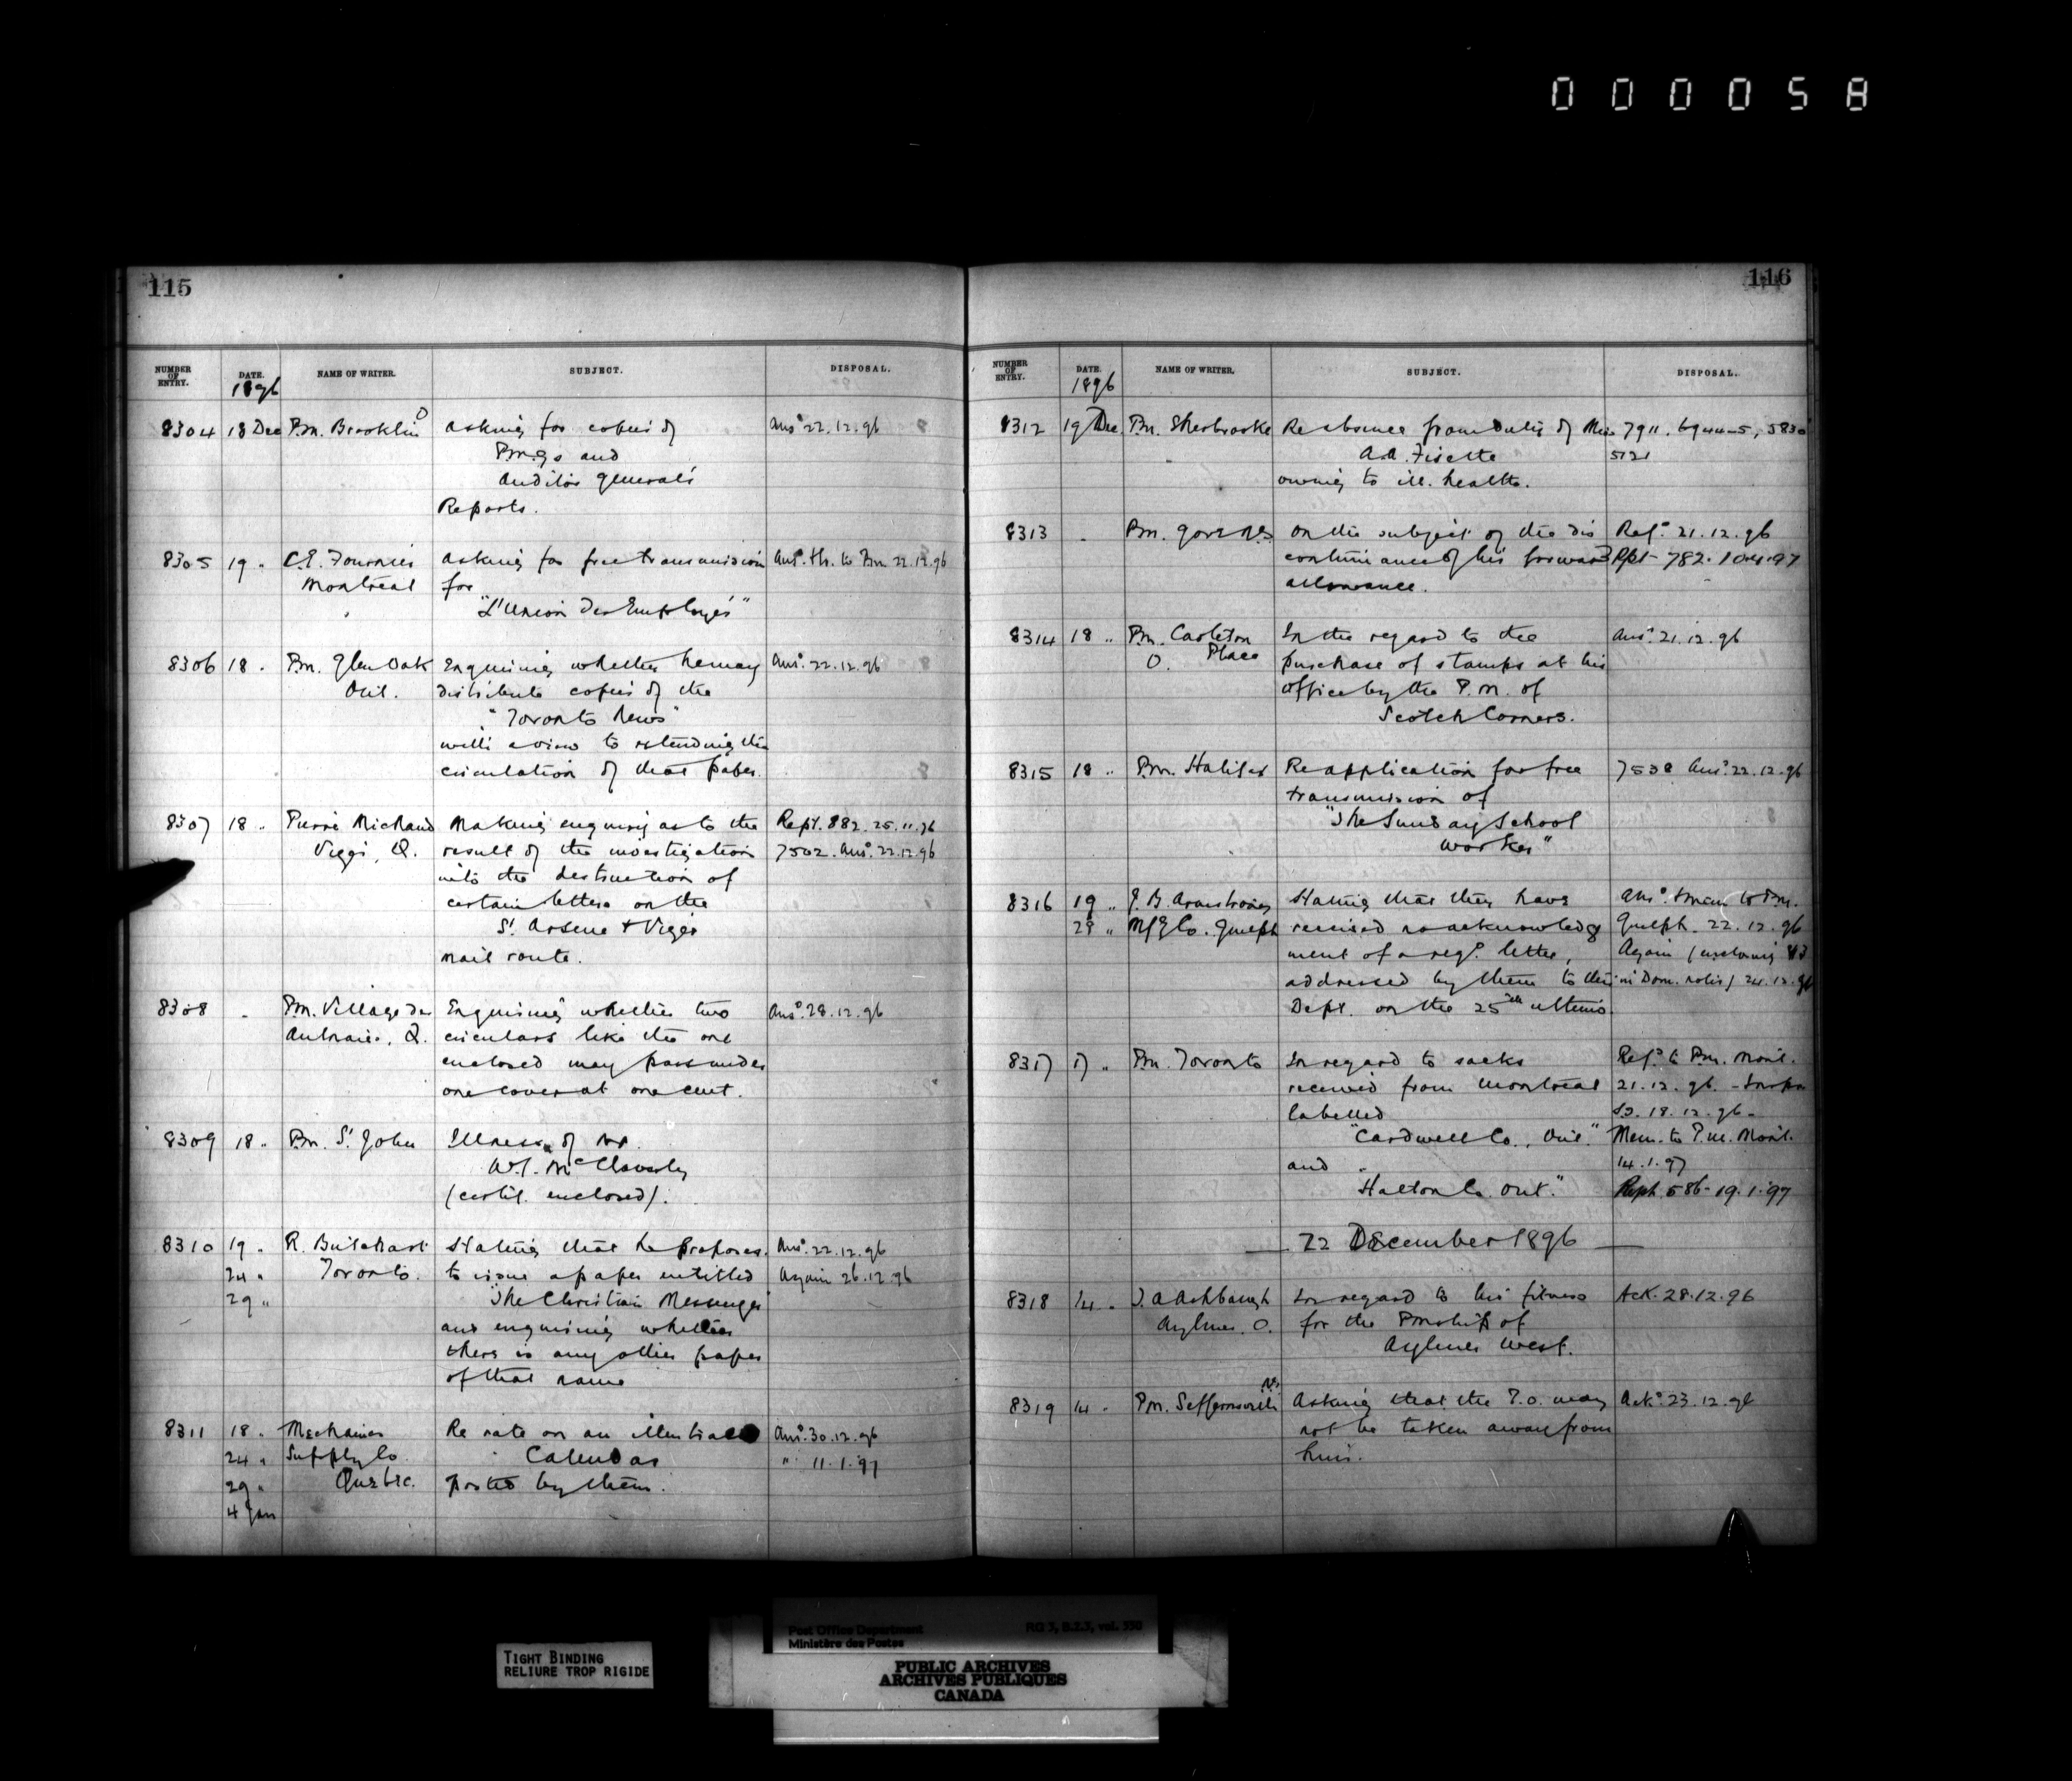 000058
115
NUMBER OF ENTRY. DATE. NAME OF WRITER. SUBJECT. DISPOSAL.
1896
8304 18 Dec P.m. Brooklin O asking for copies of Ansd 22.12.96
P.m.g's and
Auditor General's
Reports.
8305 19 " C.E. Fournier asking for free transmission Ansd. thr. to Pm 22.12.96
Montreal for
"L'Union des Employés"
8306 18 " Pm. Glen Oak Enquiring whether he may Ansd. 22.12.96
Ont. distribute copies of the
"Toronto News"
with a view to extending the
circulation of that paper.
8307 18 " Pierre Michaud Making enquiry as to the Rept. 882. 25.11.96
Viger, Q. result of the investigation 7502. Ansd. 22.12.96
into the destruction of
certain letters on the
St. Arsene & Viger
mail route.
8308 " Pm. Village des Enquiring whether two Ansd. 28.12.96
Aulnaies, Q. circulars like the one
enclosed may pass under
one cover at one cent.
8309 18 " Pm. St. John Illness of Mr.
W.J. McClaverty
(certif. enclosed).
8310 19 " R. Butchart Stating that he proposes Ansd. 22.12.96
24 " Toronto. to issue a paper entitled Again 26.12.96
29 " "The Christian Messenger"
and enquiring whether
there is any other paper
of that name
8311 18 " Mechanics Re rate on an illustrated Ansd. 30.12.96
24 " Supply Co. Calendar " 11.1.97
29 " Quebec. posted by them.
4 Jan
116
NUMBER OF ENTRY. DATE. NAME OF WRITER. SUBJECT. DISPOSAL.
1896
8312 19 Dec. Pm. Sherbrooke Re absence from duty of Miss 7911. 6944-5, 5830
A.A. Fisette 5121
owing to ill. health.
8313 " Pm. Gore N.S. On the subject of the dis Refd. 21.12.96
continuance of his forward Rpt- 782.
allowance.
8314 18 " Pm. Carleton In the regard to the Ansd. 21.12.96
O. Place purchase of stamps at his
office by the P.m. of
Scotch Corners.
8315 18 " P.m. Halifax Re application for free 7538 Ansd. 22.12.96
transmission of
"The Sunday School
Worker"
8316 19 " J.B. Armstrong Stating that they have Ansd. to Pm.
29 " Mfg Co. Guelph received no acknowledg Guelph. 22.12.96
ment of a regd. letter, Again (enclosing
addressed by them to the in Dom. notes) 24.12.96
Dept. on the 25th ultimo.
8317 17 " Pm. Toronto In regard to sacks Refd. to Pm. Mont.
received from Montreal 21.12.96.
labelled 18.12.96-
"Cardwell Co., Ont." Mem. to P.m. Mont.
and 14.1.97
"Halton Co. Ont." Rept. 586- 19.1.97
22 December 1896
8318 14 " J. A Ashbaugh In regard to his fitness Ack. 28.12.96
Aylmer. O. for the Pmship of
Aylmer West.
8319 14 " Pm. Seffernsville N.S. Asking that the P.O. may Ackd. 23.12.96
not be taken away from
him.
Post Office Department RG 3, B.2.3, vol. 550
Ministère des Postes
TIGHT BINDING
RELIURE TROP RIGIDE
PUBLIC ARCHIVES
ARCHIVES PUBLIQUES
CANADA